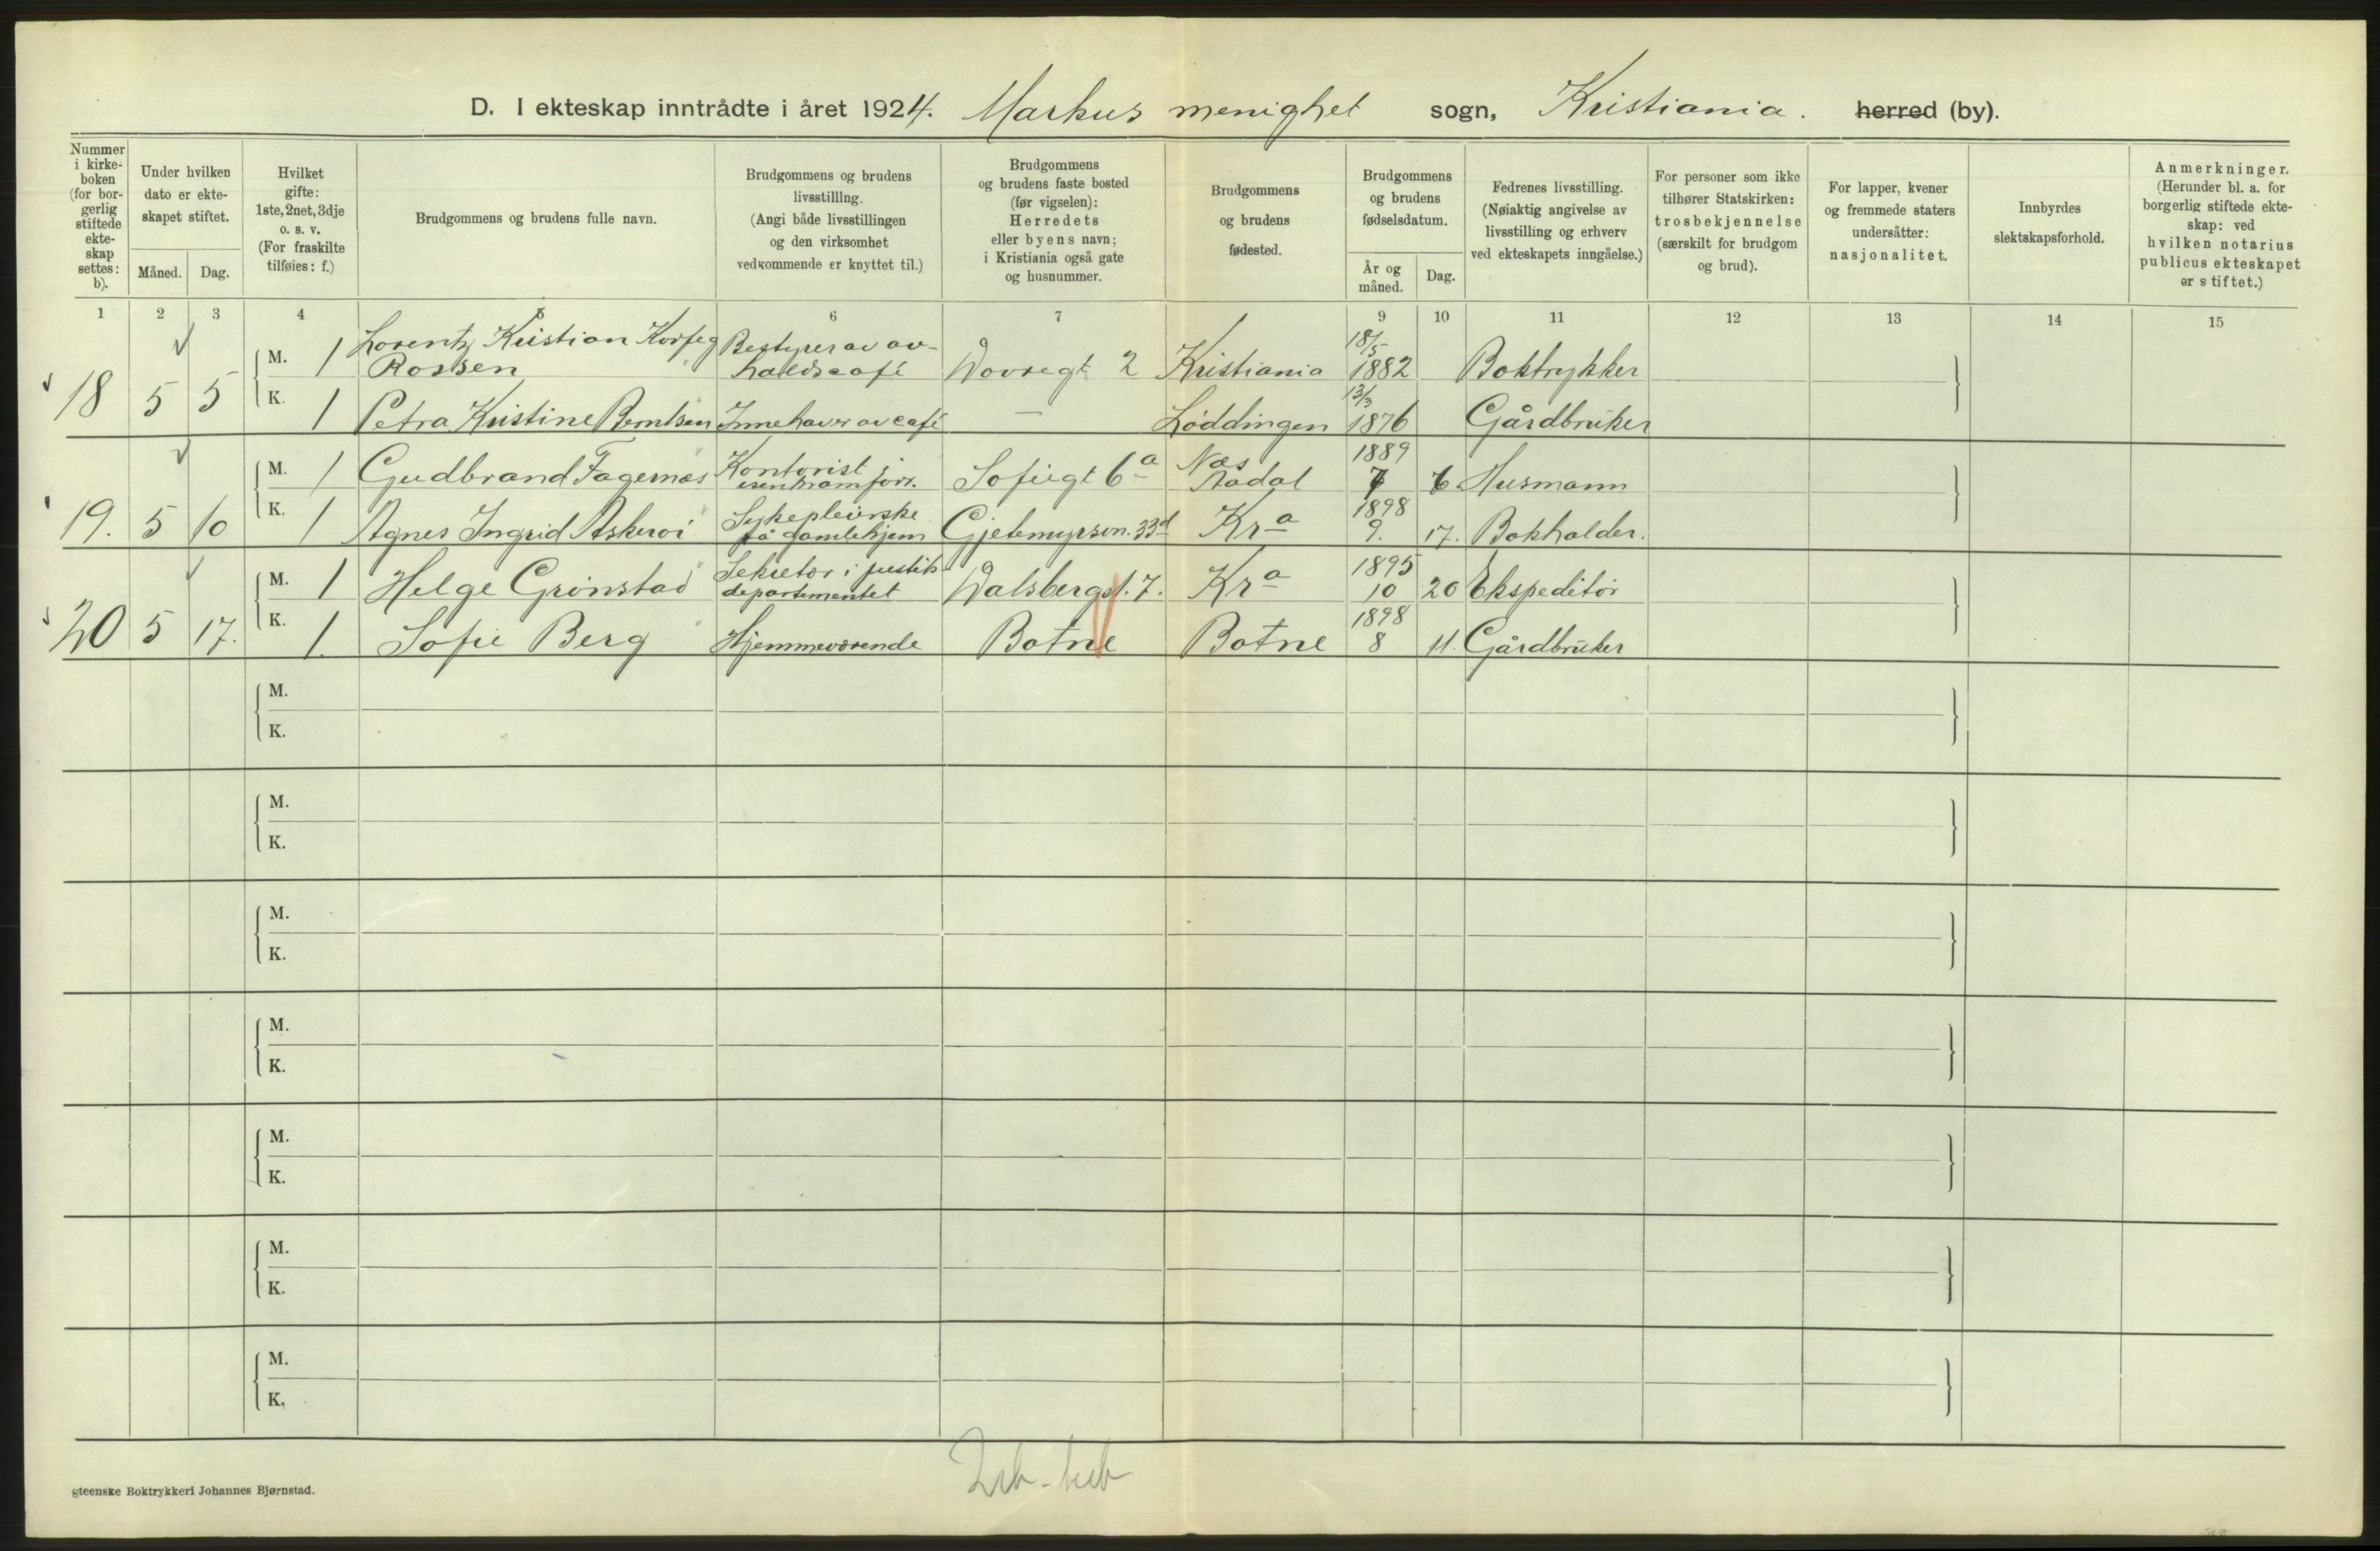 D. I ekteskap inntrådte i året 1924. Markus menighet sogn, Kristiania. herred (by).
Nummer i kirkeboken (for borgerlig stiftede ekteskap settes: b).
Under hvilken dato er ekteskapet stiftet.
Måned. Dag.
Hvilket gifte: 1ste, 2net, 3dje o. s. v. (For fraskilte tilføies: f.)
Brudgommens og brudens fulle navn.
Brudgommens og brudens livsstilling. (Angi både livsstillingen og den virksomhet vedkommende er knyttet til.)
Brudgommens og brudens faste bosted (før vigselen): Herredets eller byens navn; i Kristiania også gate og husnummer.
Brudgommens og brudens fødested.
Brudgommens og brudens fødselsdatum.
År og måned. Dag.
Fedrenes livsstilling. (Nøiaktig angivelse av livsstilling og erhverv ved ekteskapets inngåelse.)
For personer som ikke tilhører Statskirken: trosbekjennelse (særskilt for brudgom og brud).
For lapper, kvener og fremmede staters undersåtter: nasjonalitet.
Innbyrdes slektskapsforhold.
Anmerkninger. (Herunder bl. a. for borgerlig stiftede ekteskap: ved hvilken notarius publicus ekteskapet er stiftet.)
1 2 3 4 5 6 7 9 10 11 12 13 14 15
18 5 5 M. 1 Lorentz Kristian Rossen Bestyrer av avholdscafé Dovregt 2 Kristiania 18/5 1882 Boktrykker
K. 1 Petra Kristine Berntsen Innehaver av café — Løddingen 13/3 1876 Gårdbruker
19. 5 10 M. 1 Gudbrand Fagernæs Kontorist i Sofiegt 6a Næs Aadal 1889 7 6 Husmann
K. 1 Agnes Ingrid Askerøi Sykepleierske på gamlehjem Gjetemyrsvn. 33d Kra 1898 9. 17. Bokholder.
20 5 17. M. 1 Helge Grønstad Sekretær i justitsdepartementet Valsbergst. 7. Kra 1895 10 20 Ekspeditør
K. 1. Sofie Berg Hjemmeværende Botne Botne 1898 8 11. Gårdbruker
M.
K.
M.
K.
M.
K.
M.
K.
M.
K.
M.
K.
M.
K.
gteenske Boktrykkeri Johannes Bjørnstad.